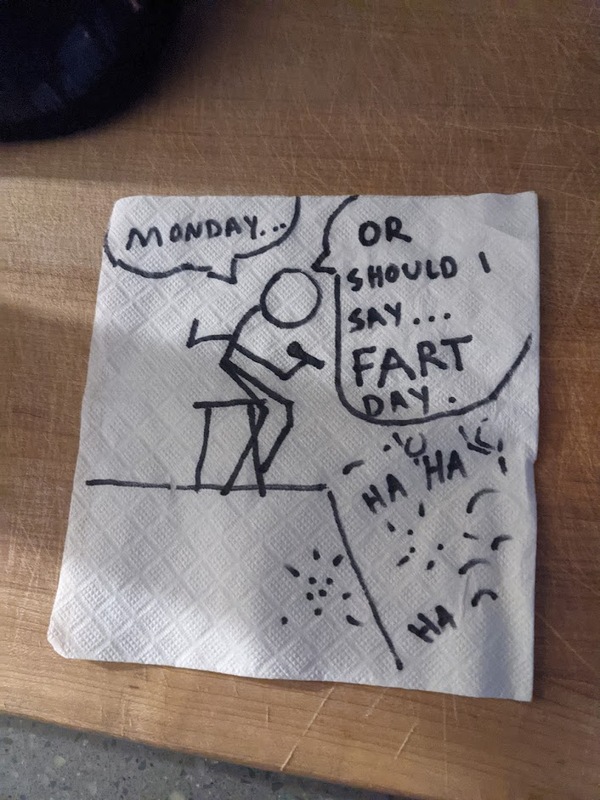 MONDAY...
OR
SHOULD I
SAY...
FART
DAY.
HA HA
HA